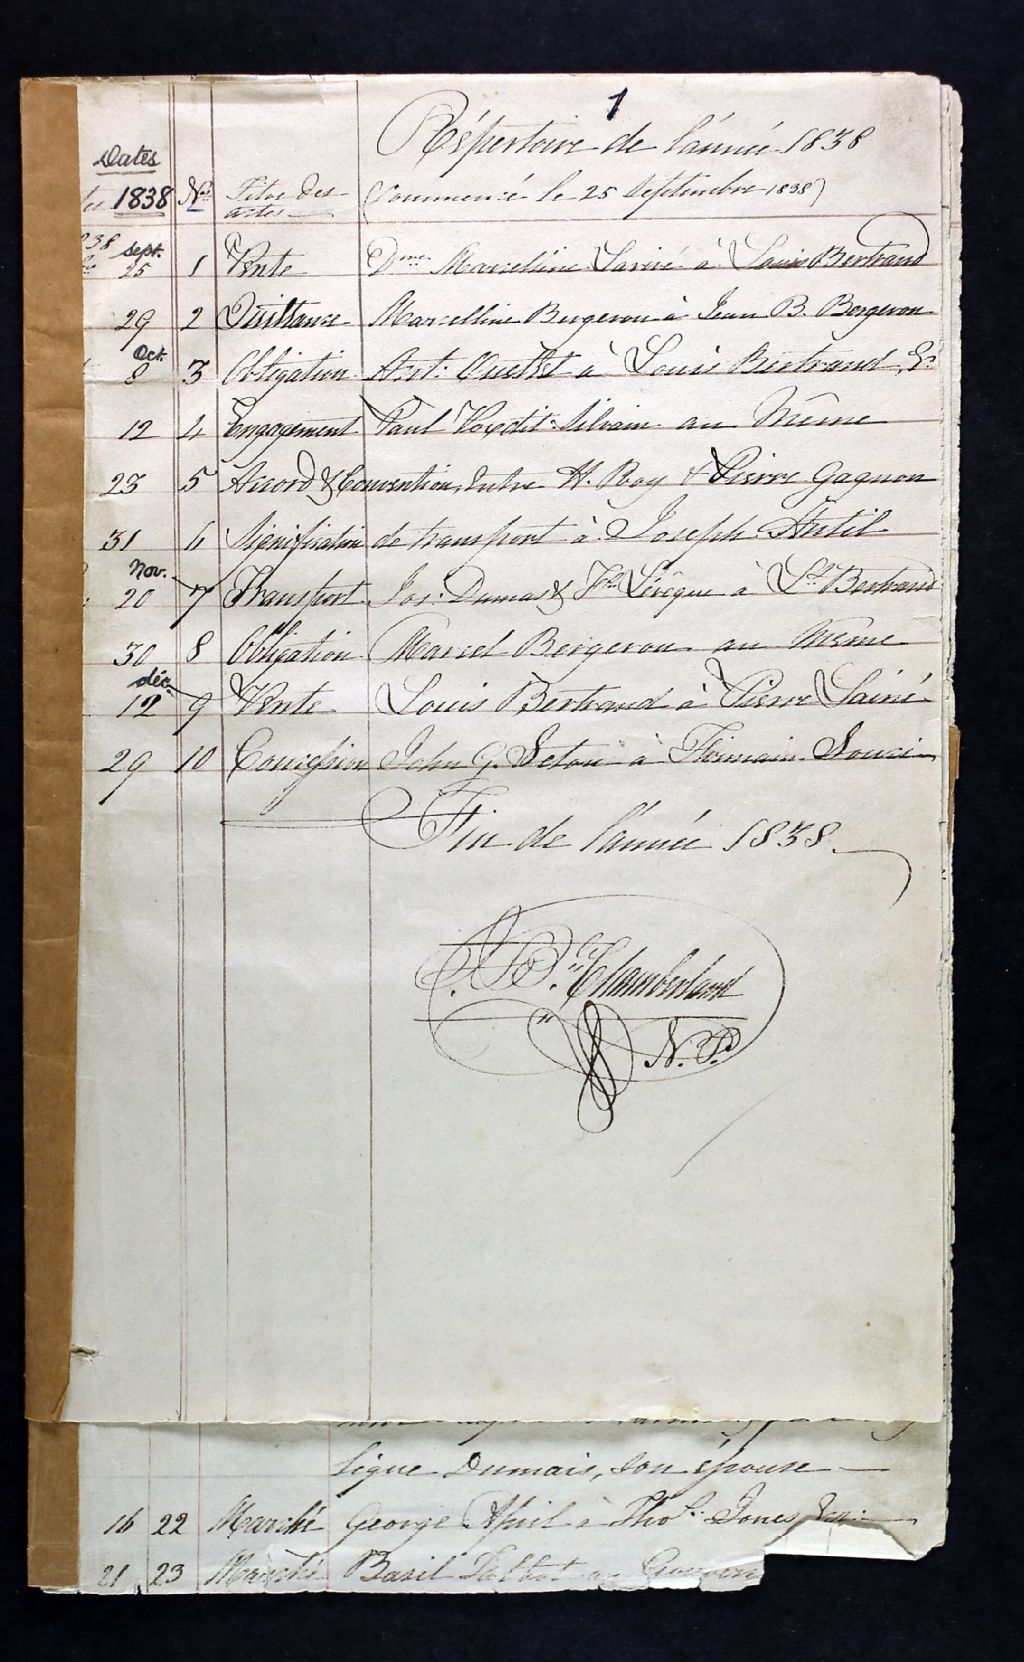 1
Répertoire de l'année 1838
Dates
1838 Nos Titre des actes (Commencé le 25 Septembre 1838)
sept. 25 1 Vente Dme. Marcelline Lavoie à Louis Bertrand
29 2 Quittance Marcelline Bergeron à Jean B. Bergeron
Oct. 8 3 Obligation Ant: Ouellet à Louis Bertrand, Er.
12 4 Engagement Paul Petit Silvain au Même
23 5 Accord & Convention, Entre H. Roy & Pierre Gagnon
31 6 Signification de transport à Joseph Antil
Nov. 20 7 Transport Jos: Dumas & Lévêque à Ls. Bertrand
30 8 Obligation Marcel Bergeron au Même
déc. 12 9 Vente Louis Bertrand à Pierre
29 10 Concession John G. Seton à Firmain Souci
Fin de l'année 1838
J. Bte. Chamberland
N. P.
Dumais, son épouse
16 22 Marché George April à Thos. Jones
21 23 Marché Basil Talbot au